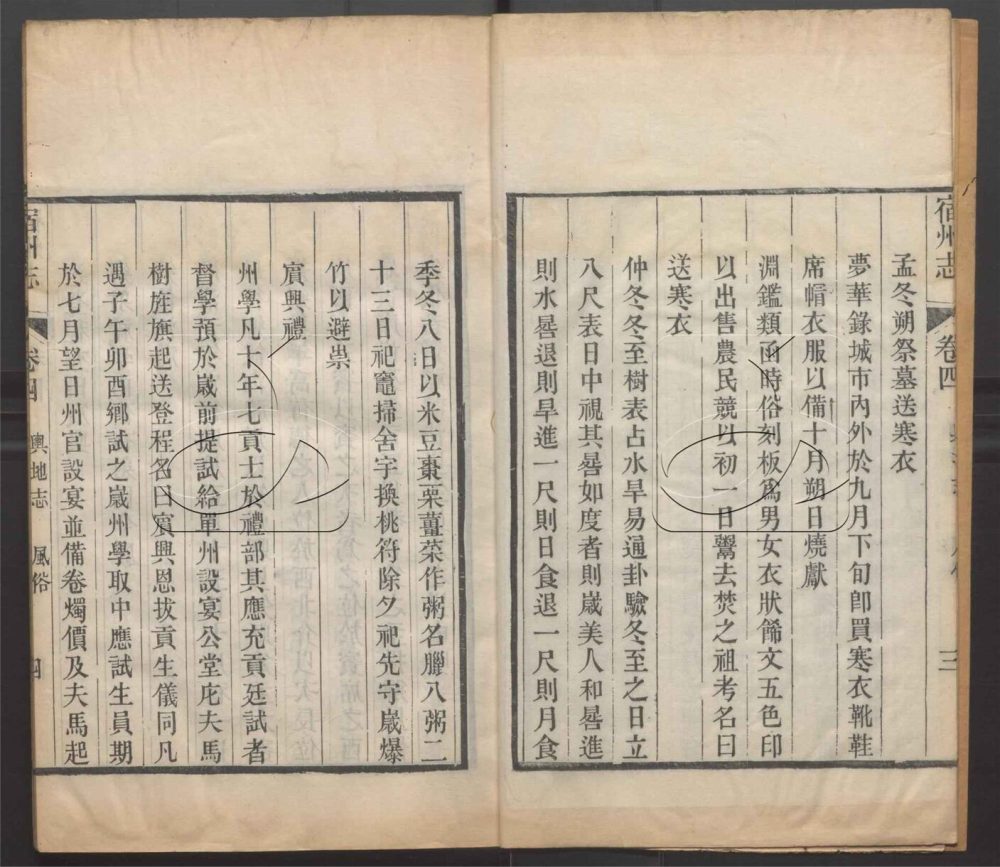 宿州志
卷四
三
孟冬朔祭墓送寒衣
夢華錄城市內外於九月下旬卽買寒衣靴鞋
席帽衣服以備十月朔日燒獻
淵鑑類函時俗刻板爲男女衣狀餙文五色印
以出售農民競以初一日鬻去焚之祖考名曰
送寒衣
仲冬冬至樹表占水旱易通卦驗冬至之日立
八尺表日中視其晷如度者則嵗美人和晷進
則水晷退則旱進一尺則日食退一尺則月食
季冬八日以米豆棗栗薑菜作粥名臘八粥二
十三日祀竈掃舍宇換桃符除夕祀先守嵗爆
竹以避祟
賔興禮
州學凡十年七貢士於禮部其應充貢廷試者
督學預於嵗前提試給單州設宴公堂庀夫馬
樹旌旗起送登程名曰賔興恩拔貢生儀同凡
遇子午卯酉鄉試之嵗州學取中應試生員期
於七月望日州官設宴並備卷燭價及夫馬起
宿州志
卷四
輿地志 風俗
四